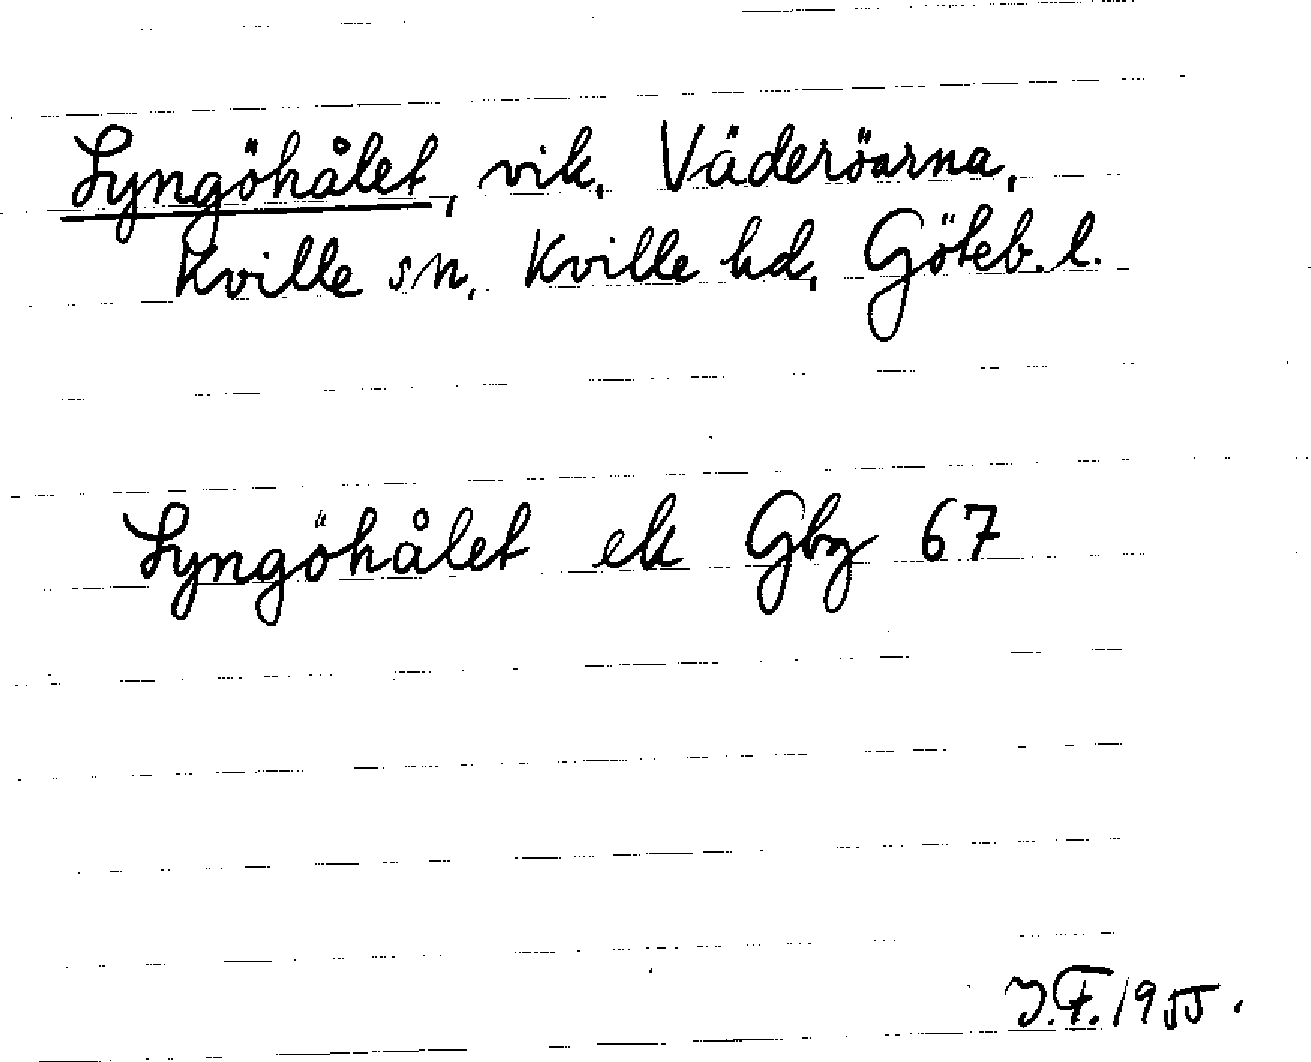 Lyngöhålet, vik, Väderöarna,
Kville sn, Kville hd, Göteb. l.
Lyngöhålet ek Gbg 67
J.F. 1955.